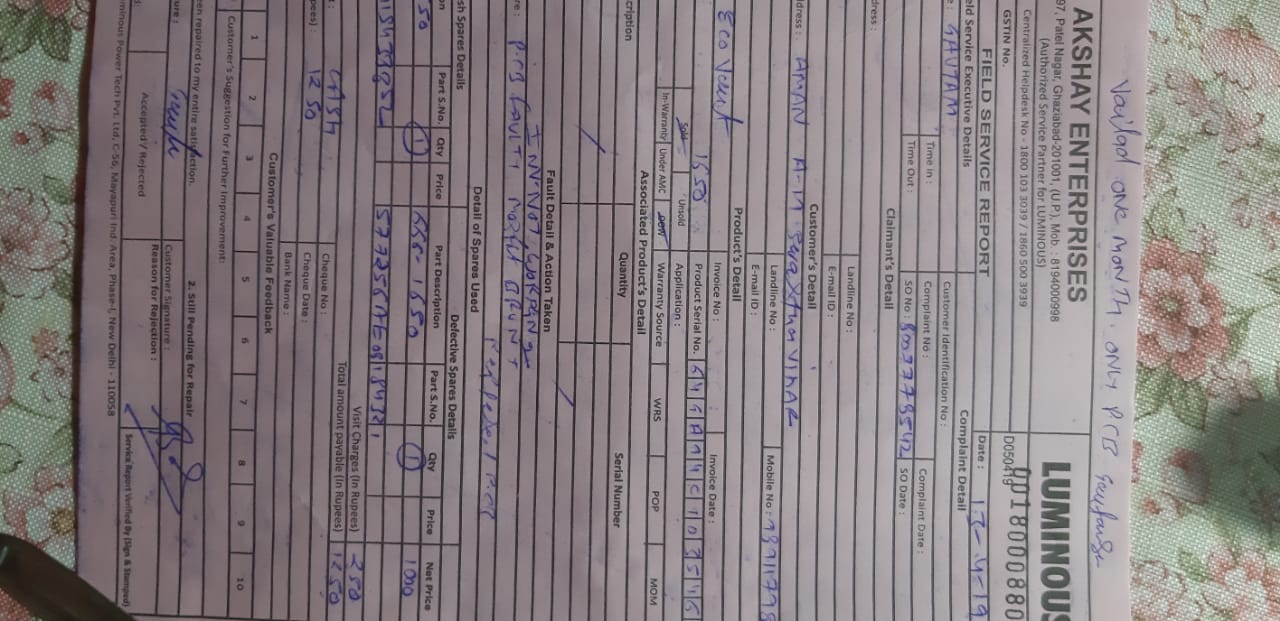 Vailad one MONTH. ONLY PCB
AKSHAY ENTERPRISES
LUMINOUS
97, Patel Nagar, Ghaziabad-201001, (U.P.), Mob. : 8194000998
(Authorized Service Partner for LUMINOUS)
Centralized Helpdesk No - 1800 103 3039 / 1860 500 3939
GSTIN No.
D050419
0018000880
FIELD SERVICE REPORT
Date :
eld Service Executive Details
Complaint Detail
GAUTAM
Customer Identification No :
Time in :
Complaint No :
Complaint Date :
Time Out :
SO No :
SO Date :
Claimant's Detail
dress :
Landline No :
E-mail ID :
Customer's Detail
dress : AMAN
Landline No :
Mobile No :
E-mail ID :
Product's Detail
Eco Vent
1650
Invoice No :
Invoice Date :
Product Serial No.
Sold
Unsold
Application :
In-Warranty
Under AMC
Warranty Source
WRS
POP
MOM
Associated Product's Detail
cription
Quantity
Serial Number
Fault Detail & Action Taken
INV. NOT. WORKING
re : PCB faulty Mosfit BRUNT
Replaced PCB
Detail of Spares Used
sh Spares Details
Defective Spares Details
on
Part S.No.
Qty
Price
Part Description
Part S.No.
Qty
Price
Net Price
50
1
1650
1
1000
Visit Charges (In Rupees)
250
: CASH
Cheque No :
Total amount payable (In Rupees)
1250
pees) : 1250
Cheque Date :
Bank Name :
Customer's Valuable Feedback
1 2 3 4 5 6 7 8 9 10
Customer's Suggestion for Further Improvement:
een repaired to my entire satisfaction.
2. Still Pending for Repair
ure :
Customer Signature :
Accepted / Rejected
Reason for Rejection :
Service Report Verified By (Sign & Stamped)
minous Power Tech Pvt. Ltd, C-56, Mayapuri Ind. Area, Phase-I, New Delhi - 110058